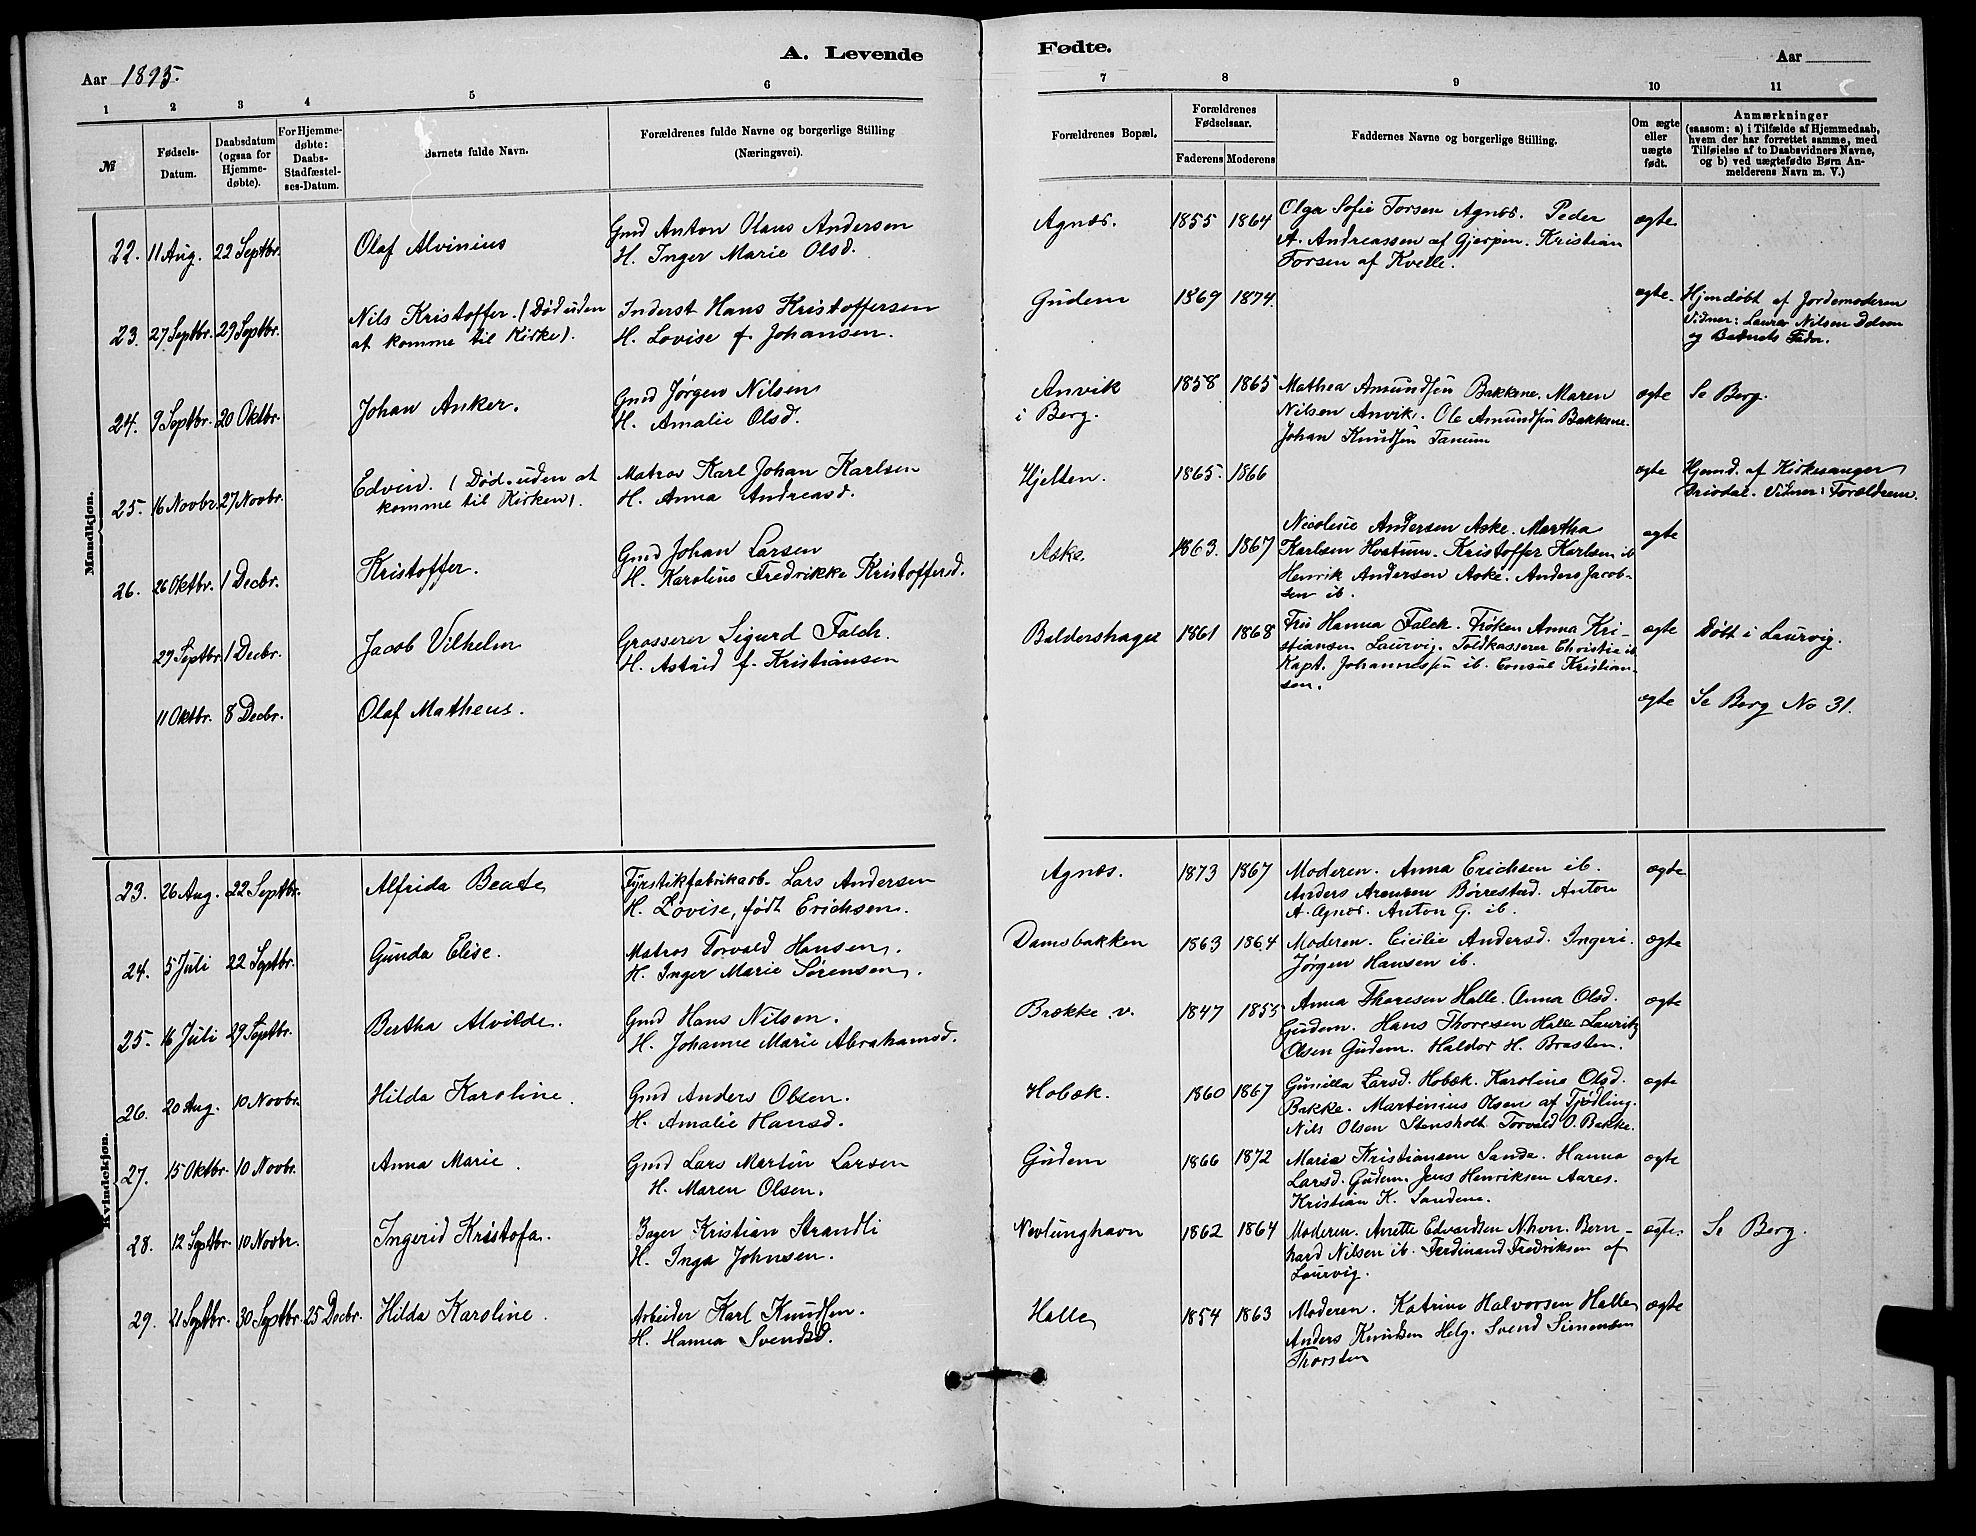 A. Levende
Fødte.
Aar 1895.
Aar
1 2 3 4 5 6 7 8 9 10 11
№
Fødsels-Datum.
Daabsdatum (ogsaa for Hjemmedøbte).
For Hjemmedøbte: Daabs-Stadfæstelses-Datum.
Barnets fulde Navn.
Forældrenes fulde Navne og borgerlige Stilling (Næringsvei).
Forældrenes Bopæl.
Forældrenes Fødselsaar.
Faderens Moderens
Faddernes Navne og borgerlige Stilling.
Om ægte eller uægte født.
Anmærkninger
(saasom: a) i Tilfælde af Hjemmedaab,
hvem der har forrettet samme, med
Tilføielse af to Daabsvidners Navne,
og b) ved uægtefødte Børn An-
melderens Navn m. V.)
Mandkjøn.
22. 11 Aug. 22 Septbr. Olaf Alvinius
Gmd Anton Hans Andersen
H. Inger Marie Olsd.
Agnæs. 1855 1864
Olga Sofie Torsen Agnæs. Peder
A. Andreassen af Gjerpen. Kristian
Torsen af Kvelle.
ægte
23. 27 Septbr. 29 Septbr.
Nils Kristoffer. (Død uden
at komme til Kirke).
Inderst Hans Kristoffersen
H. Lovise f. Johansen.
Gudem 1869 1874.
ægte.
Hjemdøbt af Jordemoderen
Vidner: Laura Nilsen Dolven
og Barnets Fader.
24. 9 Septbr. 20 Oktbr. Johan Anker.
Gmd Jørgen Nilsen
H. Amalie Olsd.
Anvik
i Berg.
1858 1865
Mathea Amundsen Bakkene. Maren
Nilsen Anvik. Ole Amundsen Bakkene.
Johan Knudsen Tanum
ægte Se Berg.
25. 16 Novbr. 27 Novbr.
Edvin. (Død uden at
komme til Kirken).
Matros Karl Johan Karlsen
H. Anna Andreasd.
Hjelten. 1865. 1866
ægte
Hjemd. af Kirkesanger
Briodal. Vidner: Forældrene.
26. 26 Oktbr. 1 Decbr. Kristoffer.
Gmd Johan Larsen
H. Karoline Fredrikke Kristoffersd.
Aske. 1863. 1867
Nicoline Andersen Aske. Martha
Karlsen Hvatum. Kristoffer Karlsen ib
Henrik Andersen Aske. Anders Jacob-
sen ib.
ægte
29 Septbr. 1 Decbr. Jacob Vilhelm
Grosserer Sigurd Falch.
H. Astrid f. Kristiansen
Baldershage 1861 1868
Fru Hanna Falck. Frøken Anna Kri-
stiansen Laurvig. Toldkasserer Christie ib
Kapt. Johannessen ib. Consul Kristian-
sen.
ægte Døbt i Laurvig.
11 Oktbr. 8 Decbr. Olaf Matheus.
ægte Se Berg No 31.
Kvindekjøn.
23. 26 Aug. 22 Septbr. Alfrida Beate
Fyrstikfabrikarb. Lars Andersen
H. Lovise, født Erichsen.
Agnæs. 1873 1867
Moderen. Anna Erichsen ib.
Anders Arensen Børrestad. Anton
A. Agnæs. Anton G. ib.
ægte
24. 5 Juli 22 Septbr. Gunda Elise.
Matros Torvald Hansen.
H. Inger Marie Sørensen.
Damsbakken 1863 1864
Moderen. Cicilie Andersd. Ingeri.
Jørgen Hansen ib.
ægte
25. 16 Juli 29 Septbr. Bertha Alvilde.
Gmd Hans Nilsen.
H. Johanne Marie Abrahamsd.
Brække v. 1847 1855
Anna Thoresen Halle. Anna Olsd.
Gudem. Hans Thoresen Halle Lauritz
Olsen Gudem. Haldor H. Brasten.
ægte
26. 20 Aug. 10 Novbr. Hilda Karoline.
Gmd Anders Olsen.
H. Amalie Hansd.
Hobæk. 1860 1867
Gunilla Larsd. Hobæk. Karoline Olsd.
Bakke. Martinius Olsen af Tjødling.
Nils Olsen Stensholt Torvald O. Bakke.
ægte
27. 15 Oktbr. 10 Novbr. Anna Marie.
Gmd Lars Martin Larsen
H. Maren Olsen.
Gudem 1866 1872
Maria Kristiansen Sande. Hanna
Larsd. Gudem. Jens Henriksen Aares.
Kristian K. Sandene.
ægte
28. 12 Septbr. 10 Novbr. Ingerid Kristofa.
Bager Kristian Strandli
H. Inga Johnsen.
Nevlunghavn 1862 1864
Moderen. Anette Edvardsen Nhvn. Bern-
hard Nilsen ib. Ferdinand Fredriksen af
Laurvig.
ægte. Se Berg.
29. 21 Septbr. 30 Septbr. 25 Decbr. Hilda Karoline.
Arbeider Karl Knudsen.
H. Hanna Svendsd.
Halle 1854 1863
Moderen. Katrine Halvorsen Halle
Anders Knudsen Helg. Svend Simonsen
Thorsten
ægte